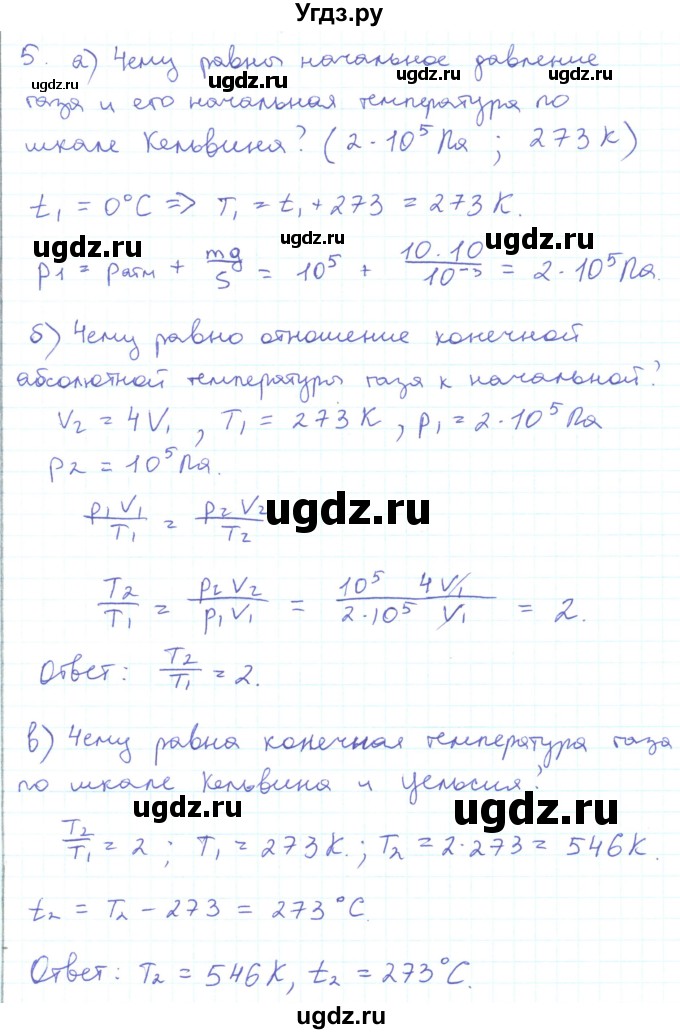 Угдз.ру
5. а) Чему равны начальное давление
ugdz.ru ugdz.ru ugdz.ru ugdz.ru
газа и его начальная температура по
шкале Кельвина? (2·10⁵ Па ; 273 К)
t₁ = 0°C => T₁ = t₁ + 273 = 273 К.
ugdz.ru ugdz.ru ugdz.ru
p1 = pатм + mg/S = 10⁵ + 10·10/10⁻³ = 2·10⁵ Па.
б) Чему равно отношение конечной
абсолютной температуры газа к начальной?
V₂ = 4V₁ , T₁ = 273 К , p₁ = 2·10⁵ Па
p2 = 10⁵ Па.
p₁V₁/T₁ = p₂V₂/T₂
ugdz.ru
T₂/T₁ = p₂V₂/p₁V₁ = 10⁵ 4V₁/2·10⁵ V₁ = 2.
Ответ: T₂/T₁ = 2.
в) Чему равна конечная температура газа
по шкале Кельвина и Цельсия?
ugdz.ru ugdz.ru
T₂/T₁ = 2 ; T₁ = 273 К. ; T₂ = 2·273 = 546 К.
t₂ = T₂ − 273 = 273°C.
Ответ: T₂ = 546 К, t₂ = 273°C.
ugdz.ru ugdz.ru ugdz.ru